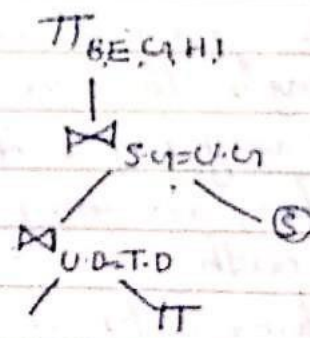 π B,E,G,H,I
⋈ S.G=U.G
S
⋈ U.D=T.D
π